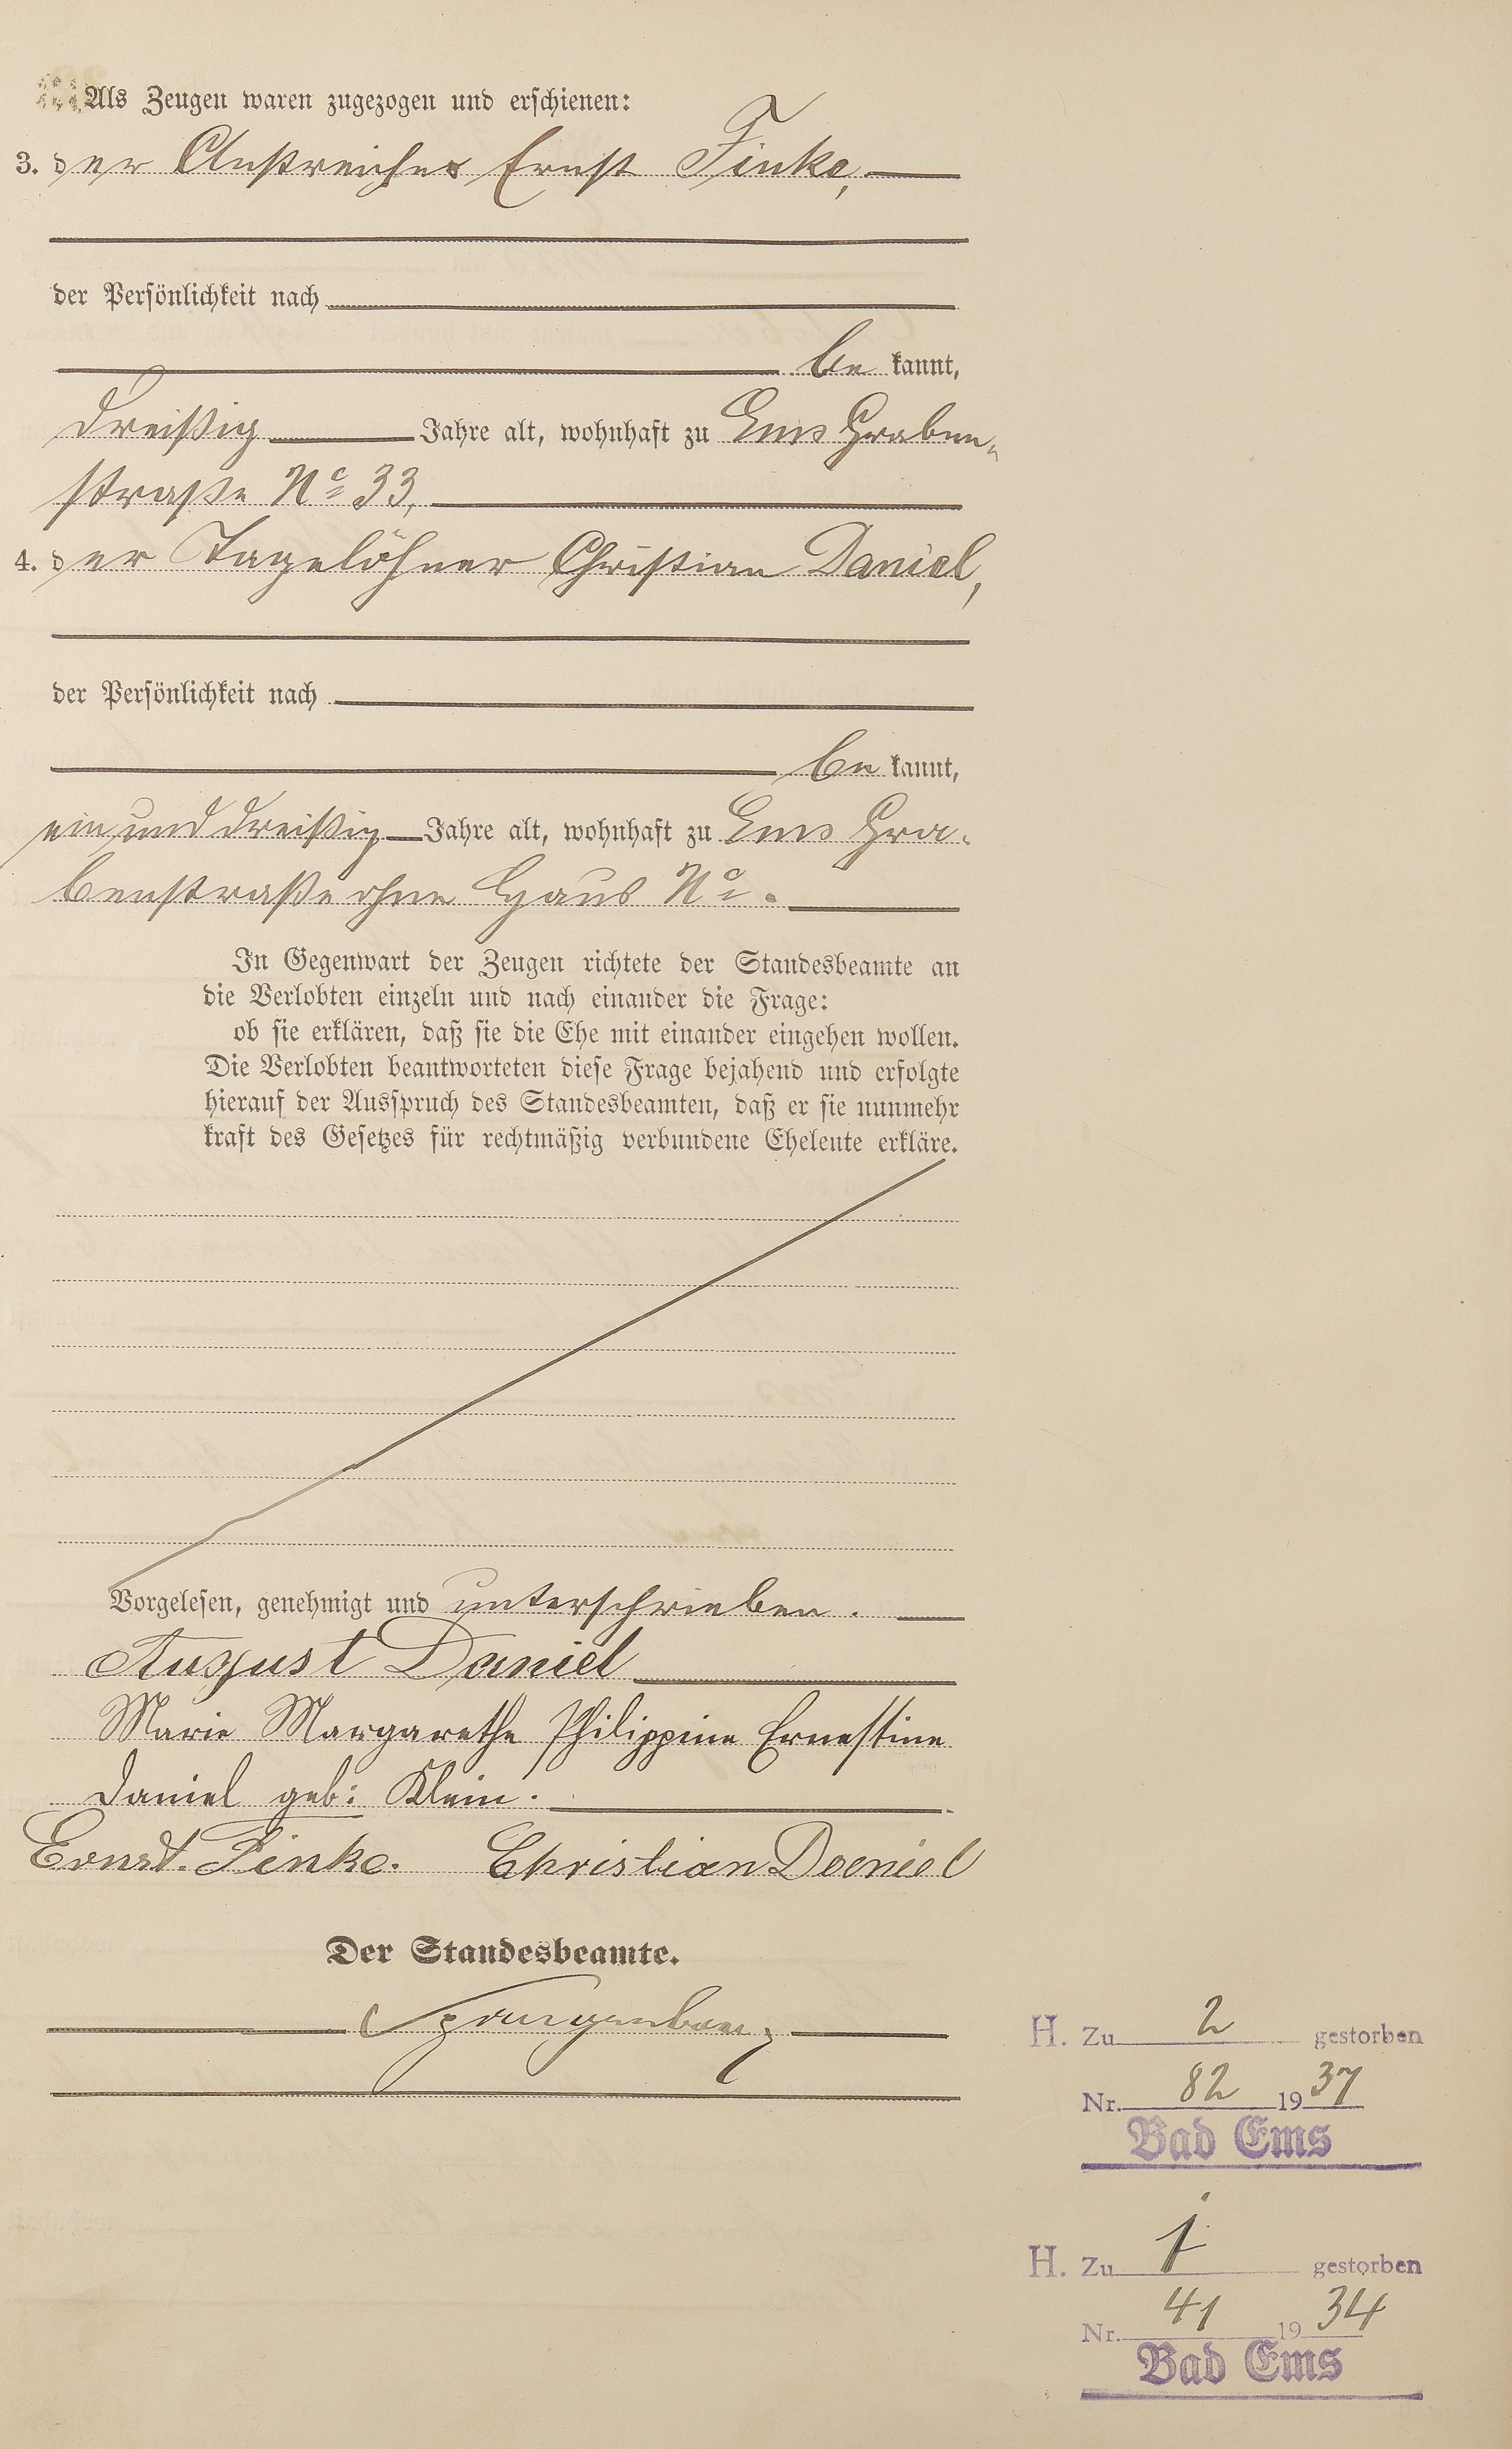 Als Zeugen waren zugezogen und erschienen:
3. der Anstreicher Ernst Finke,
der Persönlichkeit nach
be kannt,
dreißig Jahre alt, wohnhaft zu Ems Graben-
straße No 33,
4. der Tagelöhner Christian Daniel,
der Persönlichkeit nach
be kannt,
ein und dreißig Jahre alt, wohnhaft zu Ems Gra-
benstraße ohne Haus No.
In Gegenwart der Zeugen richtete der Standesbeamte an
die Verlobten einzeln und nach einander die Frage:
ob sie erklären, daß sie die Ehe mit einander eingehen wollen.
Die Verlobten beantworteten diese Frage bejahend und erfolgte
hierauf der Ausspruch des Standesbeamten, daß er sie nunmehr
kraft des Gesetzes für rechtmäßig verbundene Eheleute erkläre.
Vorgelesen, genehmigt und unterschrieben.
August Daniel
Marie Margarethe Philippine Ernestine
Daniel geb: Klein.
Ernst. Finke. Christian Daeniel
Der Standesbeamte.
H. Zu 2 gestorben
Nr. 82 1937
Bad Ems
H. Zu 1 gestorben
Nr. 41 1934
Bad Ems